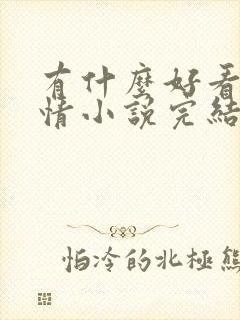 有什麼好看
情小說完結
怕冷的北極熊